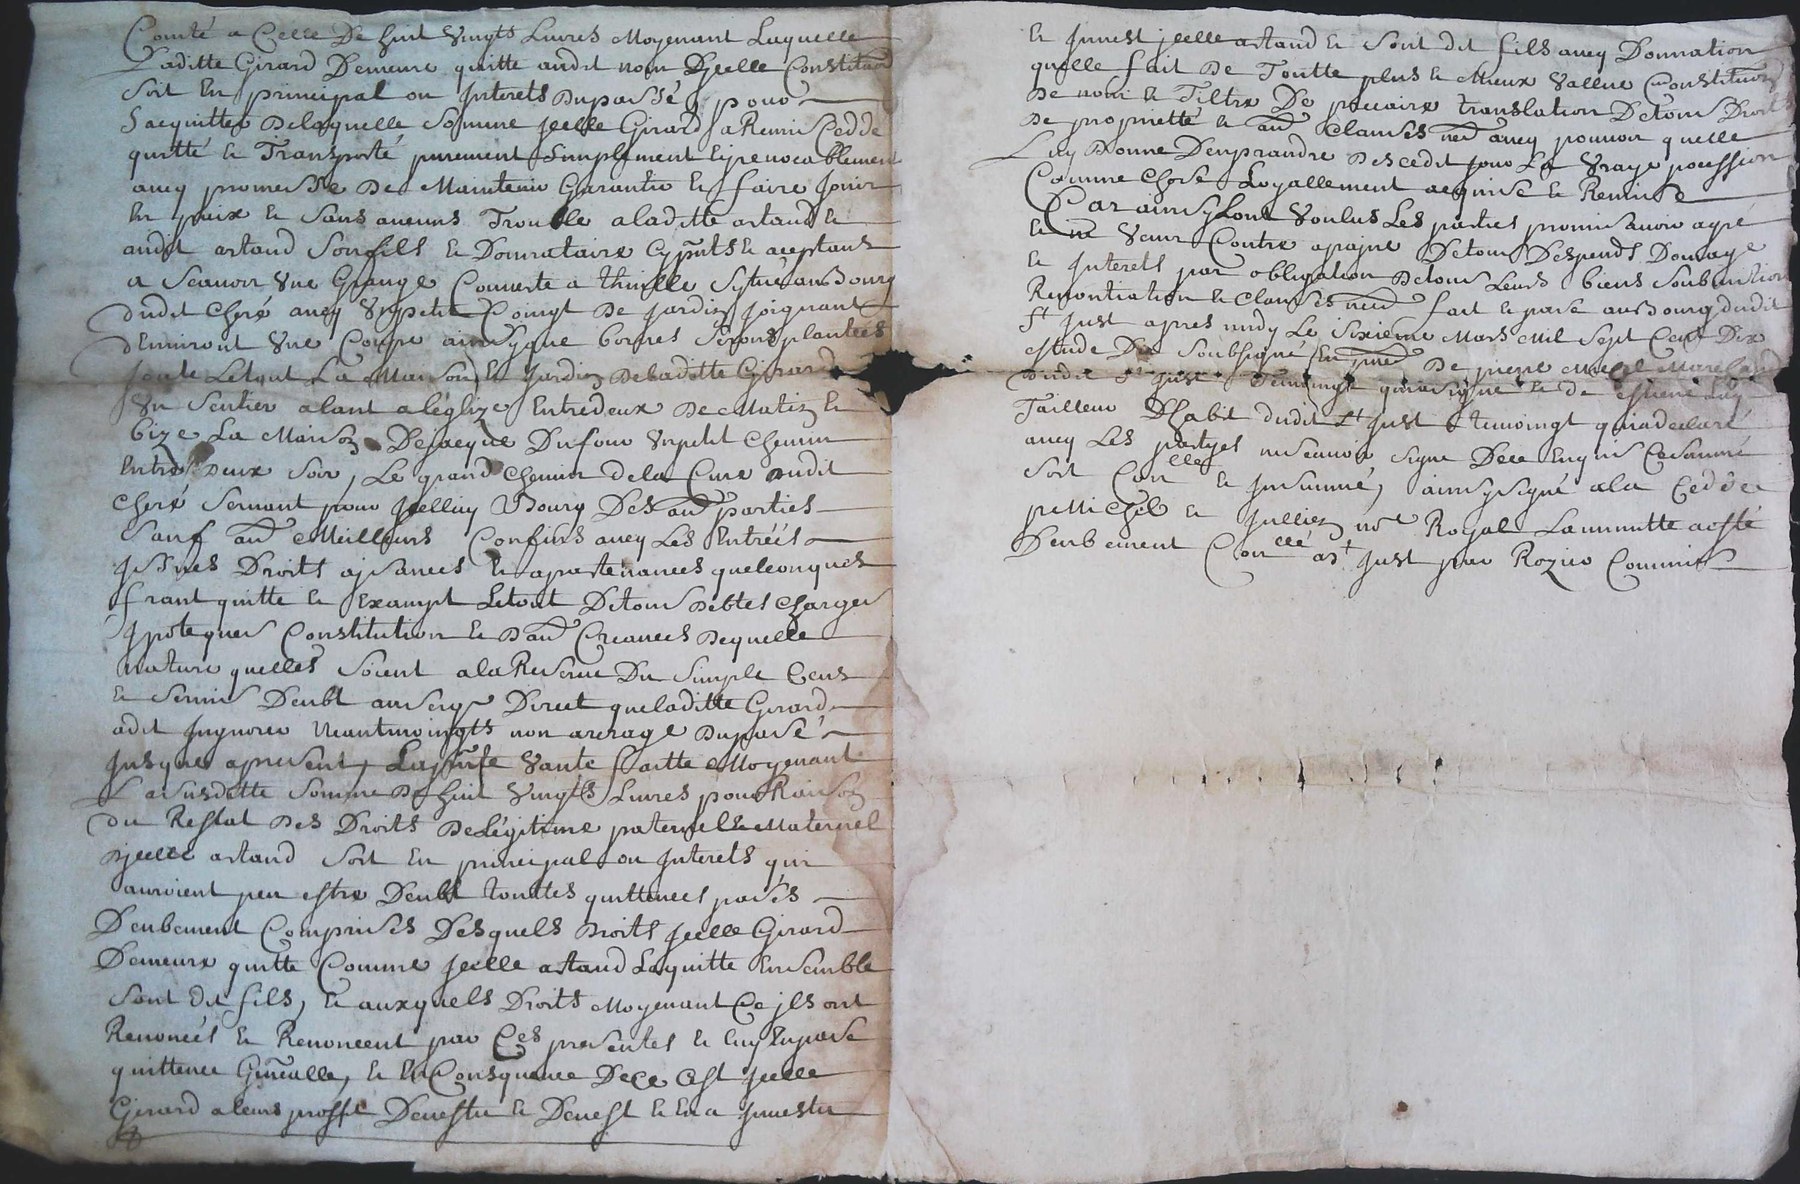 Comté a Celle De huit Vingts Livres Moyenant Laquelle
Laditte Girard Demeure quitte audit nom Djcelle Constitution
soit En principal ou Interets Dupassé, pour
Sacquitter Delaquelle somme jcelle Girard a Remis Cedde
quitté et Transporté purement Simplement Eijrevocablement
avecq promesse De Maintenir Garantir et faire Jouir
En paix et sans aucuns Trouble a laditte artaud et
audit artaud Sonfils et Donnataire Cyp̃nts et aceptans
a Scavoir Vne Grange Couverte a thuille Sytuée au Bourg
dudit Cheré avecq Vnpetit Coingt De jardin joignant
Denviront Vne Coupe ainsyque bornes Serons plantées
Joute Letout La Maison Et Jardin Deladitte Girard
Vn Sentier alant a léglize Entredeux De Matin et
bize La Maison De jacque Dufour Vnpetit Chemin
Entre deux soir, Le grand Chemin dela Cure dudit
Cheré Servant pour jcelluy Bourg Des aũ parties
Sauf aũ Meilleurs Confins avecq Les Entrées
Jssues Droits aysances et apartenances quelconques
franc quitte et Exampt Letout Detous Debtes Charges
Jpoteques Constitution et Daũ Creances Dequelle
nature quelles Soient ala Reserve Du Simple Cens
et Servis Deubt au seigr Direct queladitte Girard
adit Jngnorer Neantmoingts non arerage Dupassé
Jusques apresent, Lap̃nte Vante faitte Moyenant
La susditte Somme De huit Vingts Livres pour Raison
du Restat Des Droits Delégitime paternel et Maternel
Djcelle artaud soit En principal ou Interets qui
auroient peu estre Deubt toutes quittances pasés
Deubement Comprises Desquels Droits jcelle Girard
Demeure quitte Comme jcelle artaud Laquitte Ensemble
Sont Dit fils, et auxquels Droits Moyenant Ce jls ont
Renoncés et Renoncent par Ces presentes et Luy Enpasse
quittance Genẽralle, et En Consequance Dece Cest jcelle
Girard a leurs proffit Devestue et Devest et En a Jnvestu
et Jnvest jcelle artaud et Sont dit fils avecq Donnation
quelle fait De Toutte plus et Mieux Vallue Constitution
De nom et Tiltre De precaire translation Detous Droits
De proprietté et aũ Clauses neũ avecq pouvoir quelle
Luy Donne Denprandre Descedit jour La Vraye poscession
Comme Chose Loyallement acquise et Remise
Car ainsy Lont Voulus Les parties promis avoir agré
et ne Venir Contre apajne Detous Despends Domage
et Interets par obligation Detous Leurs biens Soubmition
Renontiation et Clauses neũ fait et passé au Bourg dudit
St Just apres midy Le sixieme Mars Mil Sept Cent Dix
estude Du Soubsigné En p̃nce De pierre
dudit St Just Temoingt quiasigné et de
Tailleur Dhabit dudit St Just temoingt quiadeclaré
avecq Les partyes nescavoir Signe Dece Enquis Cesommé
soit Conllé et jnsinnué, ainsysigné ala Cedde
petti Chet et Jullien nore Royal Laminutte a esté
Deubement Conllée a St Just par Rozier Commis